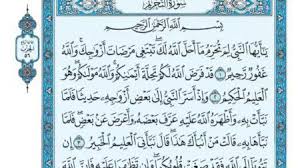 سُورَةُ التَّحْرِيمِ
بِسْمِ اللَّهِ الرَّحْمَٰنِ الرَّحِيمِ
يَٰٓأَيُّهَا ٱلنَّبِىُّ لِمَ تُحَرِّمُ مَآ أَحَلَّ ٱللَّهُ لَكَ ۖ تَبْتَغِى مَرْضَاتَ أَزْوَٰجِكَ ۚ وَٱللَّهُ
غَفُورٌ رَّحِيمٌ ١ قَدْ فَرَضَ ٱللَّهُ لَكُمْ تَحِلَّةَ أَيْمَٰنِكُمْ ۚ وَٱللَّهُ مَوْلَىٰكُمْ ۖ وَهُوَ
ٱلْعَلِيمُ ٱلْحَكِيمُ ٢ وَإِذْ أَسَرَّ ٱلنَّبِىُّ إِلَىٰ بَعْضِ أَزْوَٰجِهِۦ حَدِيثًا فَلَمَّا
نَبَّأَتْ بِهِۦ وَأَظْهَرَهُ ٱللَّهُ عَلَيْهِ عَرَّفَ بَعْضَهُۥ وَأَعْرَضَ عَنۢ بَعْضٍ ۖ فَلَمَّا
نَبَّأَهَا بِهِۦ قَالَتْ مَنْ أَنۢبَأَكَ هَٰذَا ۖ قَالَ نَبَّأَنِىَ ٱلْعَلِيمُ ٱلْخَبِيرُ ٣ إِن